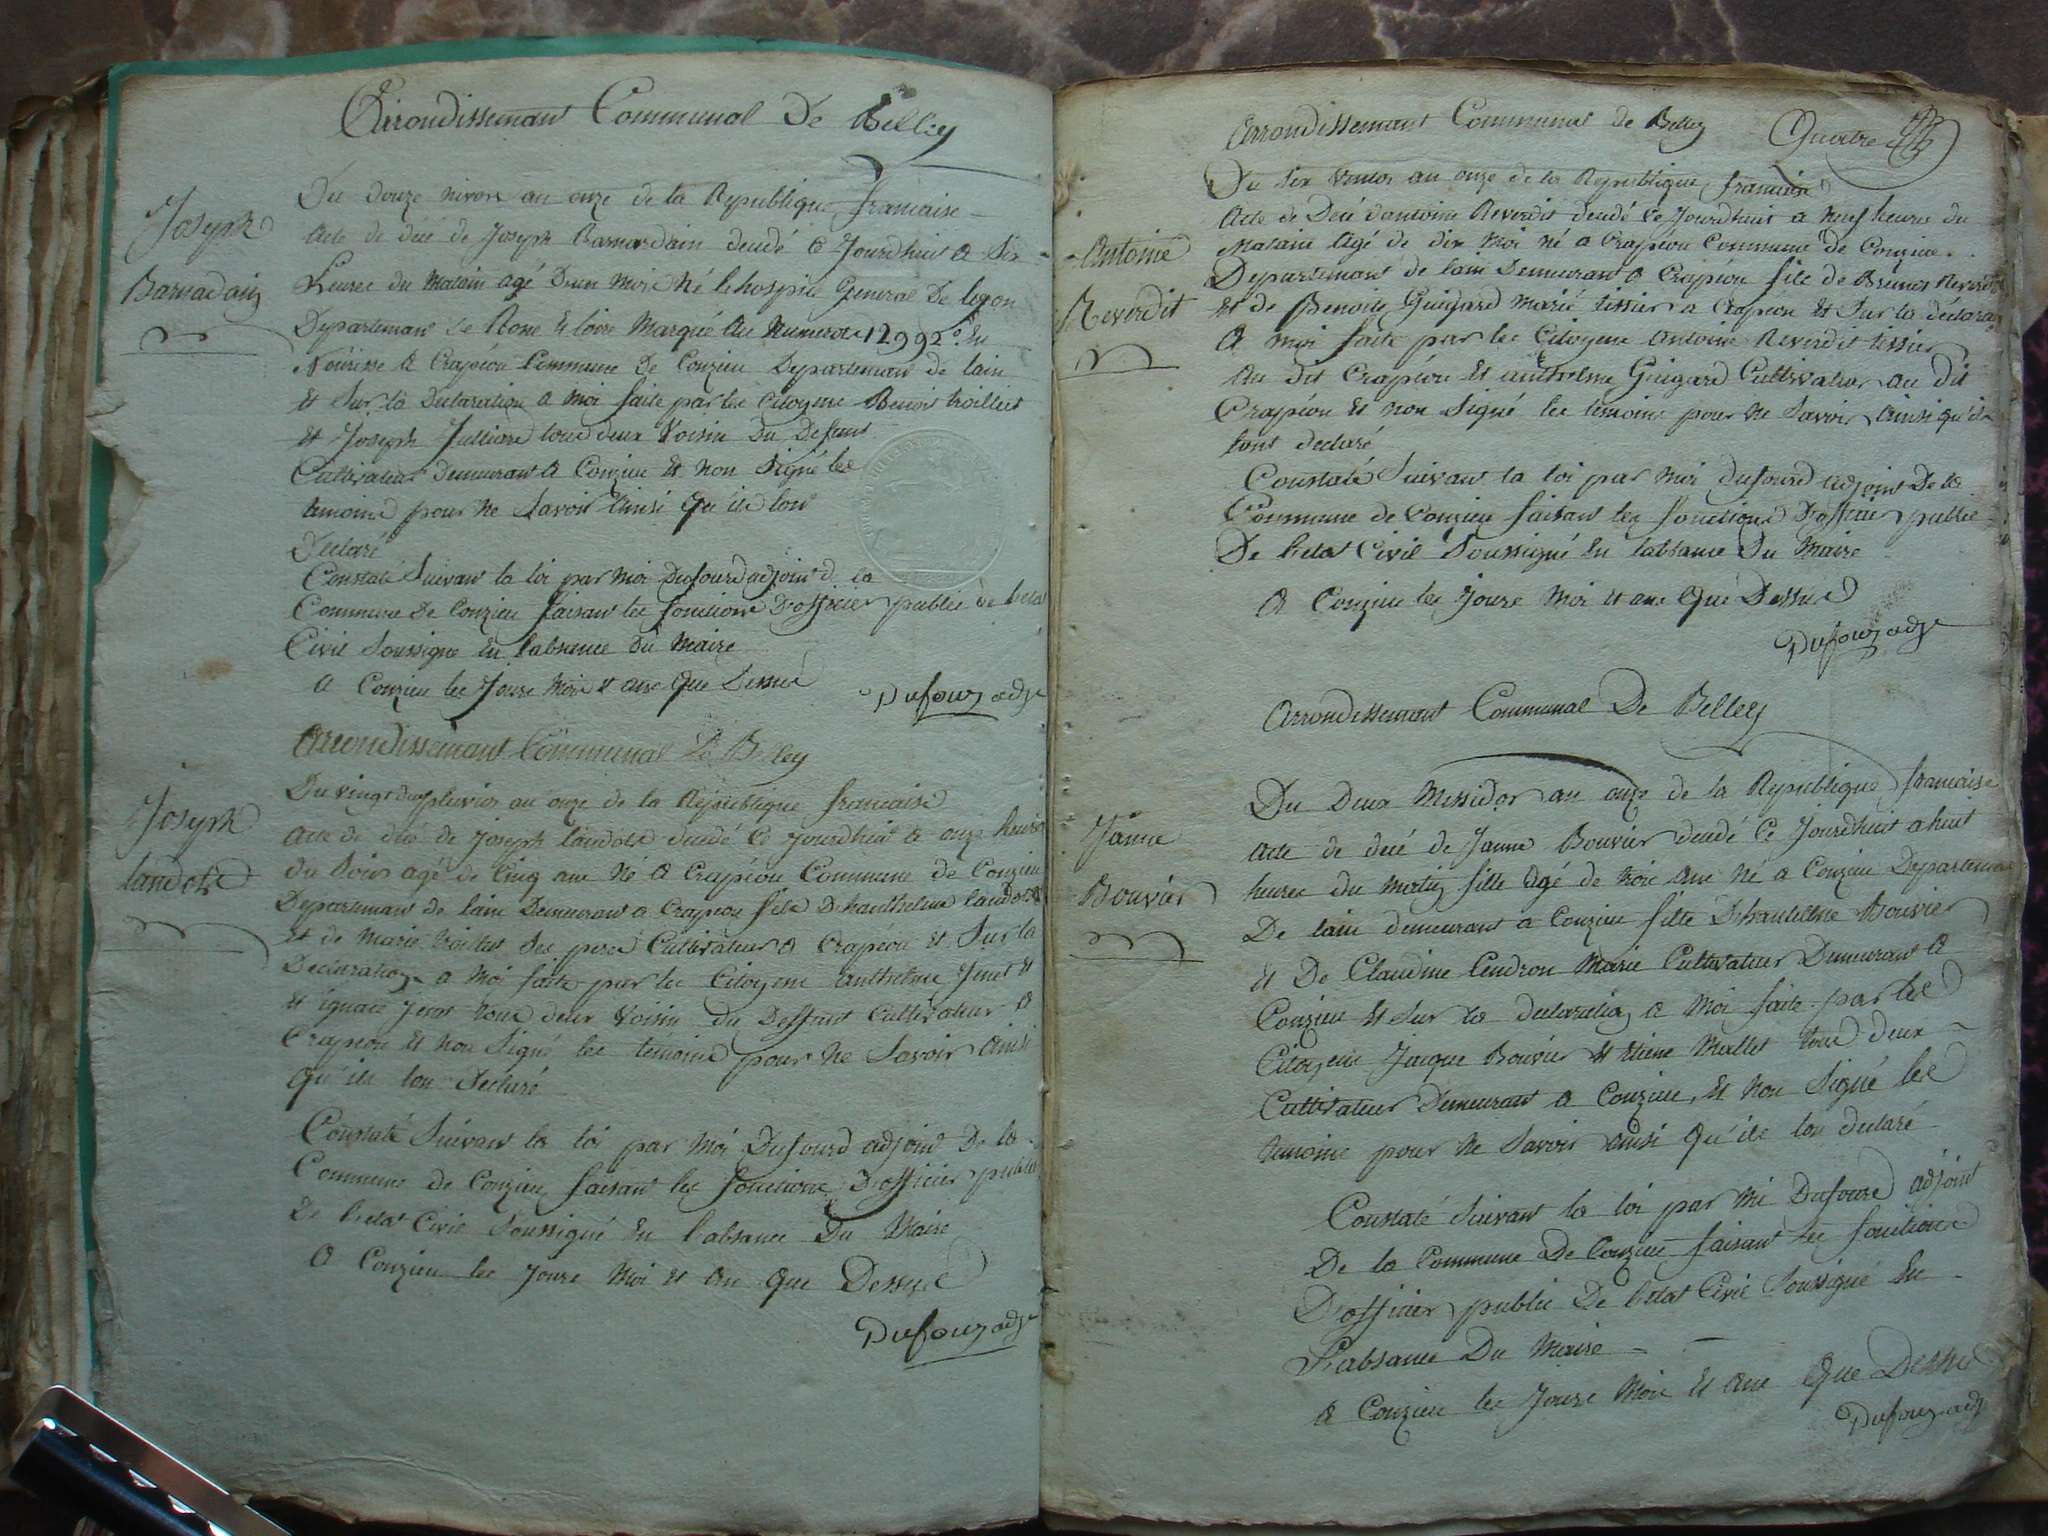 Arrondissemant Communal De Belley
Du douze nivose an onze de la Republique francaise
Joseph
Barnardain
acte de décé de Joseph Barnardain décédé ce Jourdhuit a Six
heures du matain agé d'un mois Né lehospice General De lyon
Departemant De Rone et loire Marqué au Numerote 12992 En
Nourisse a Crapéou Commune De Conzieu Departemant de lain
et Sur la Declaration a moi faite par les Citoyens Benoit troillet
et Joseph Julliard tous deux Voisin Du Defunt
Cultivateur Demeurant a Conzieu et non Signé les
temoins pour ne Savoir Ainsi qu'ils lon
Declaré
Constaté Suivant la loi par moi Dufourd adjoint d la
Commune De Conzieu faisant les fonctions D'officier public de letat
Civil Soussigné en l'absence du Maire
a Conzieu les Jours Mois et ans que Dessus
Dufour adj
Arrondissemant Communal De Belley
Du vingt pluvios an onze de la Republique francaise
Joseph
landoz
acte de décé de Joseph landoz décédé ce Jourdhuit a onze heures
du Soir agé de Cinq ans Né a Crapéou Commune de Conzieu
Departemant de lain Demeurant a Crapeou fils D'hanthelme landoz
et de Marie troillet Ses pere Cultivateur a Crapéou et Sur la
Declaration a Moi faite par les Citoyens anthelme Jenet et
et ignace Jenet tous deux Voisin du Deffunt Cultivateur a
Crapéou et non Signé les temoins pour ne Savoir ainsi
qu'ils lon Declaré
Constaté Suivant la loi par Moi Dufourd adjoint De la
Commune de Conzieu faisant les fonctions D'officier public
De letat Civil Soussigné en l'absance Du Maire
a Conzieu les Jours Moi et an que Dessus
Dufour adj
Arrondissemant Communal de Belley Quatre
Du Six Ventos an onze de la Republique francaise
Antoine
Reverdit
acte de Décé d'antoine Reverdit décédé ce Jourdhuit a neuf heures du
Matain agé de dix Moi né a Crapéou Commune de Conzieu
Departemant de lain Demeurant a Crapéou fils de Brunos Reverdit
et de Benoite Guigard Marié tissier a Crapeou et Sur la déclaration
a moi faite par les Citoyens Antoine Reverdit tissier
au dit Crapéou et anthelme Guigard Cultivateur au dit
Crapéou et non Signé les temoins pour ne Savoir Ainsi qu'ils
lont declaré
Constaté Suivant la loi par Moi Dufourd adjoint De la
Commune de Conzieu faisant les fonctions D'officier public
De letat Civil Soussigné en labsance Du Maire
a Conzieu les Jours Moi et ans Que Dessus
Dufour adj
Arrondissemant Communal De Belley
Du Deux Messidor an onze de la Republique francaise
Janne
Bouvier
acte de décé de Janne Bouvier décédé ce Jourdhuit a huit
heures du matin fille agé de trois ans Né a Conzieu Departemant
De lain demeurant a Conzieu fille D'hantelme Bouvier
et De Claudine Cendron Marié Cultivateur Demeurant a
Conzieu et Sur la declaration a Moi faite par les
Citoyens Jacque Bouvier et Etiene Mallet tous deux
Cultivateur Demeurant a Conzieu, et non Signé les
temoins pour ne Savoir ainsi qu'ils lon declaré
Constaté Suivant la loi par Mi Dufourd adjoint
De la Commune De Conzieu faisant les fonctions
D'officier public De letat Civil Soussigné En
L'absance Du Maire
a Conzieu les Jours Mois et ans Que Dessus
Dufour adj